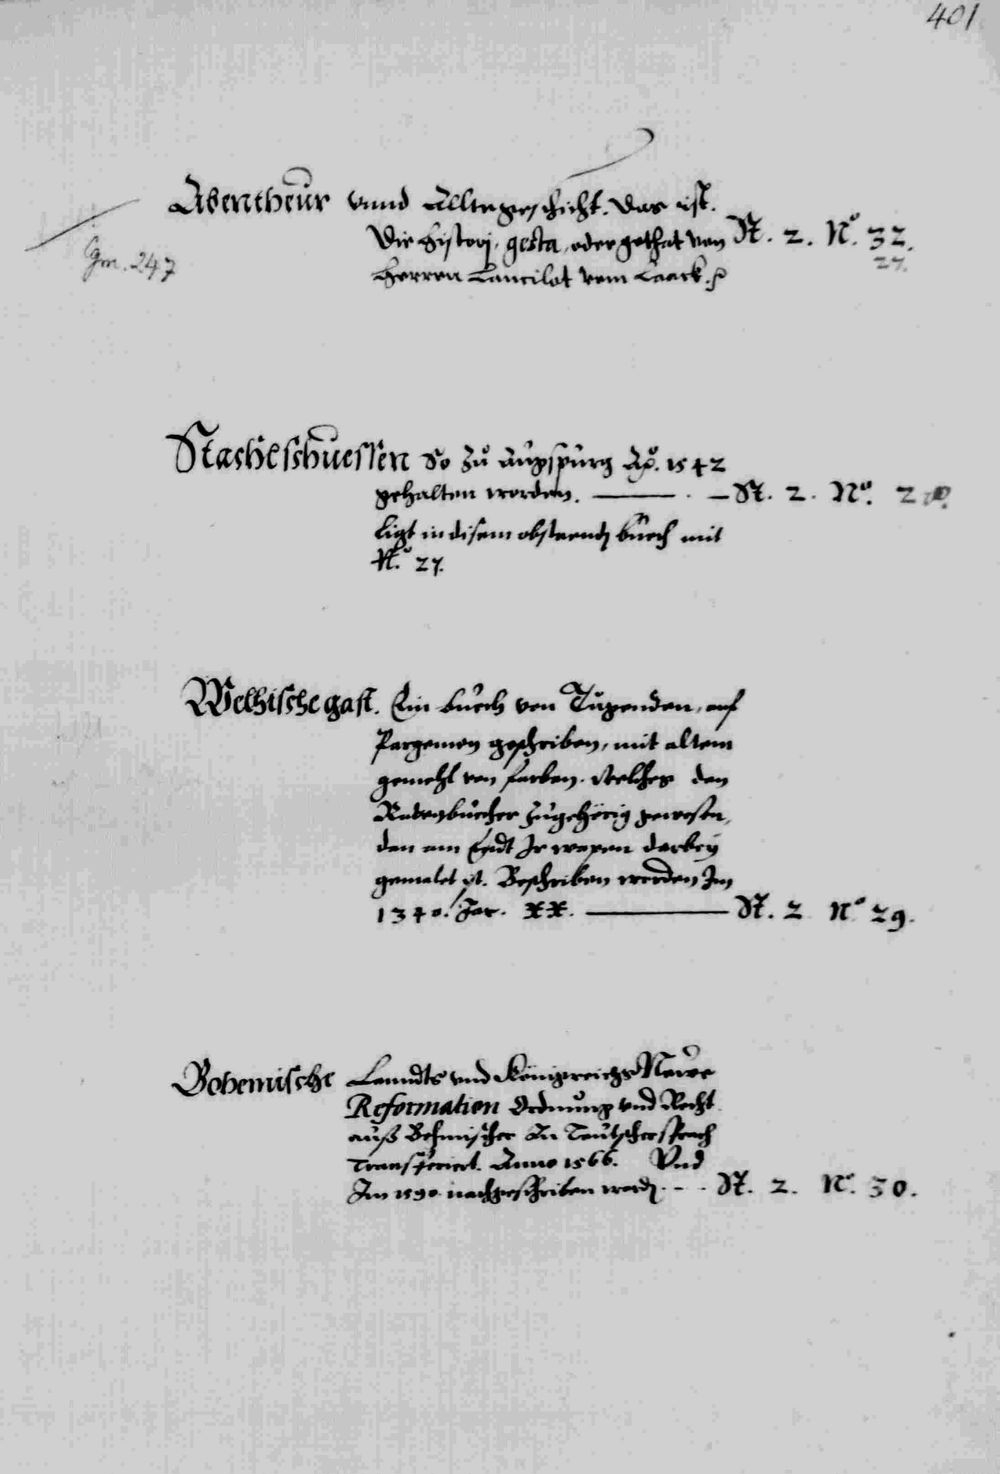 401
Abentheür vnnd Allte geschicht. Das ist.
Die Histori, gesta, oder gethat von St. 2. No. 32.
27.
Herren Lancilot vom Laack.
Gm. 247
Stachlschuessen So zů Augspurg Ao. 1542
gehalten worden. St. 2. No. 2
Ligt in disem obsteend buech mit
No. 27.
Welhische gast. Ein buech von Tugenden, auf
Pargemen geschriben, mit altem
gemehl von farben. Welches den
zugehörig gewesen,
den am Endt Ir wapen darbey
gemalet ist. Beschriben worden Im
1340. Jar. XX. St. 2 No 29.
Bohemische Lanndts vnd Königreichs Newe
Reformation Ordnung vnd Recht
auß Behmischer In Teutscher sprach
Transferiert. Anno 1566. Vnd
Im 1590 nachgeschriben word. St. 2. No. 30.